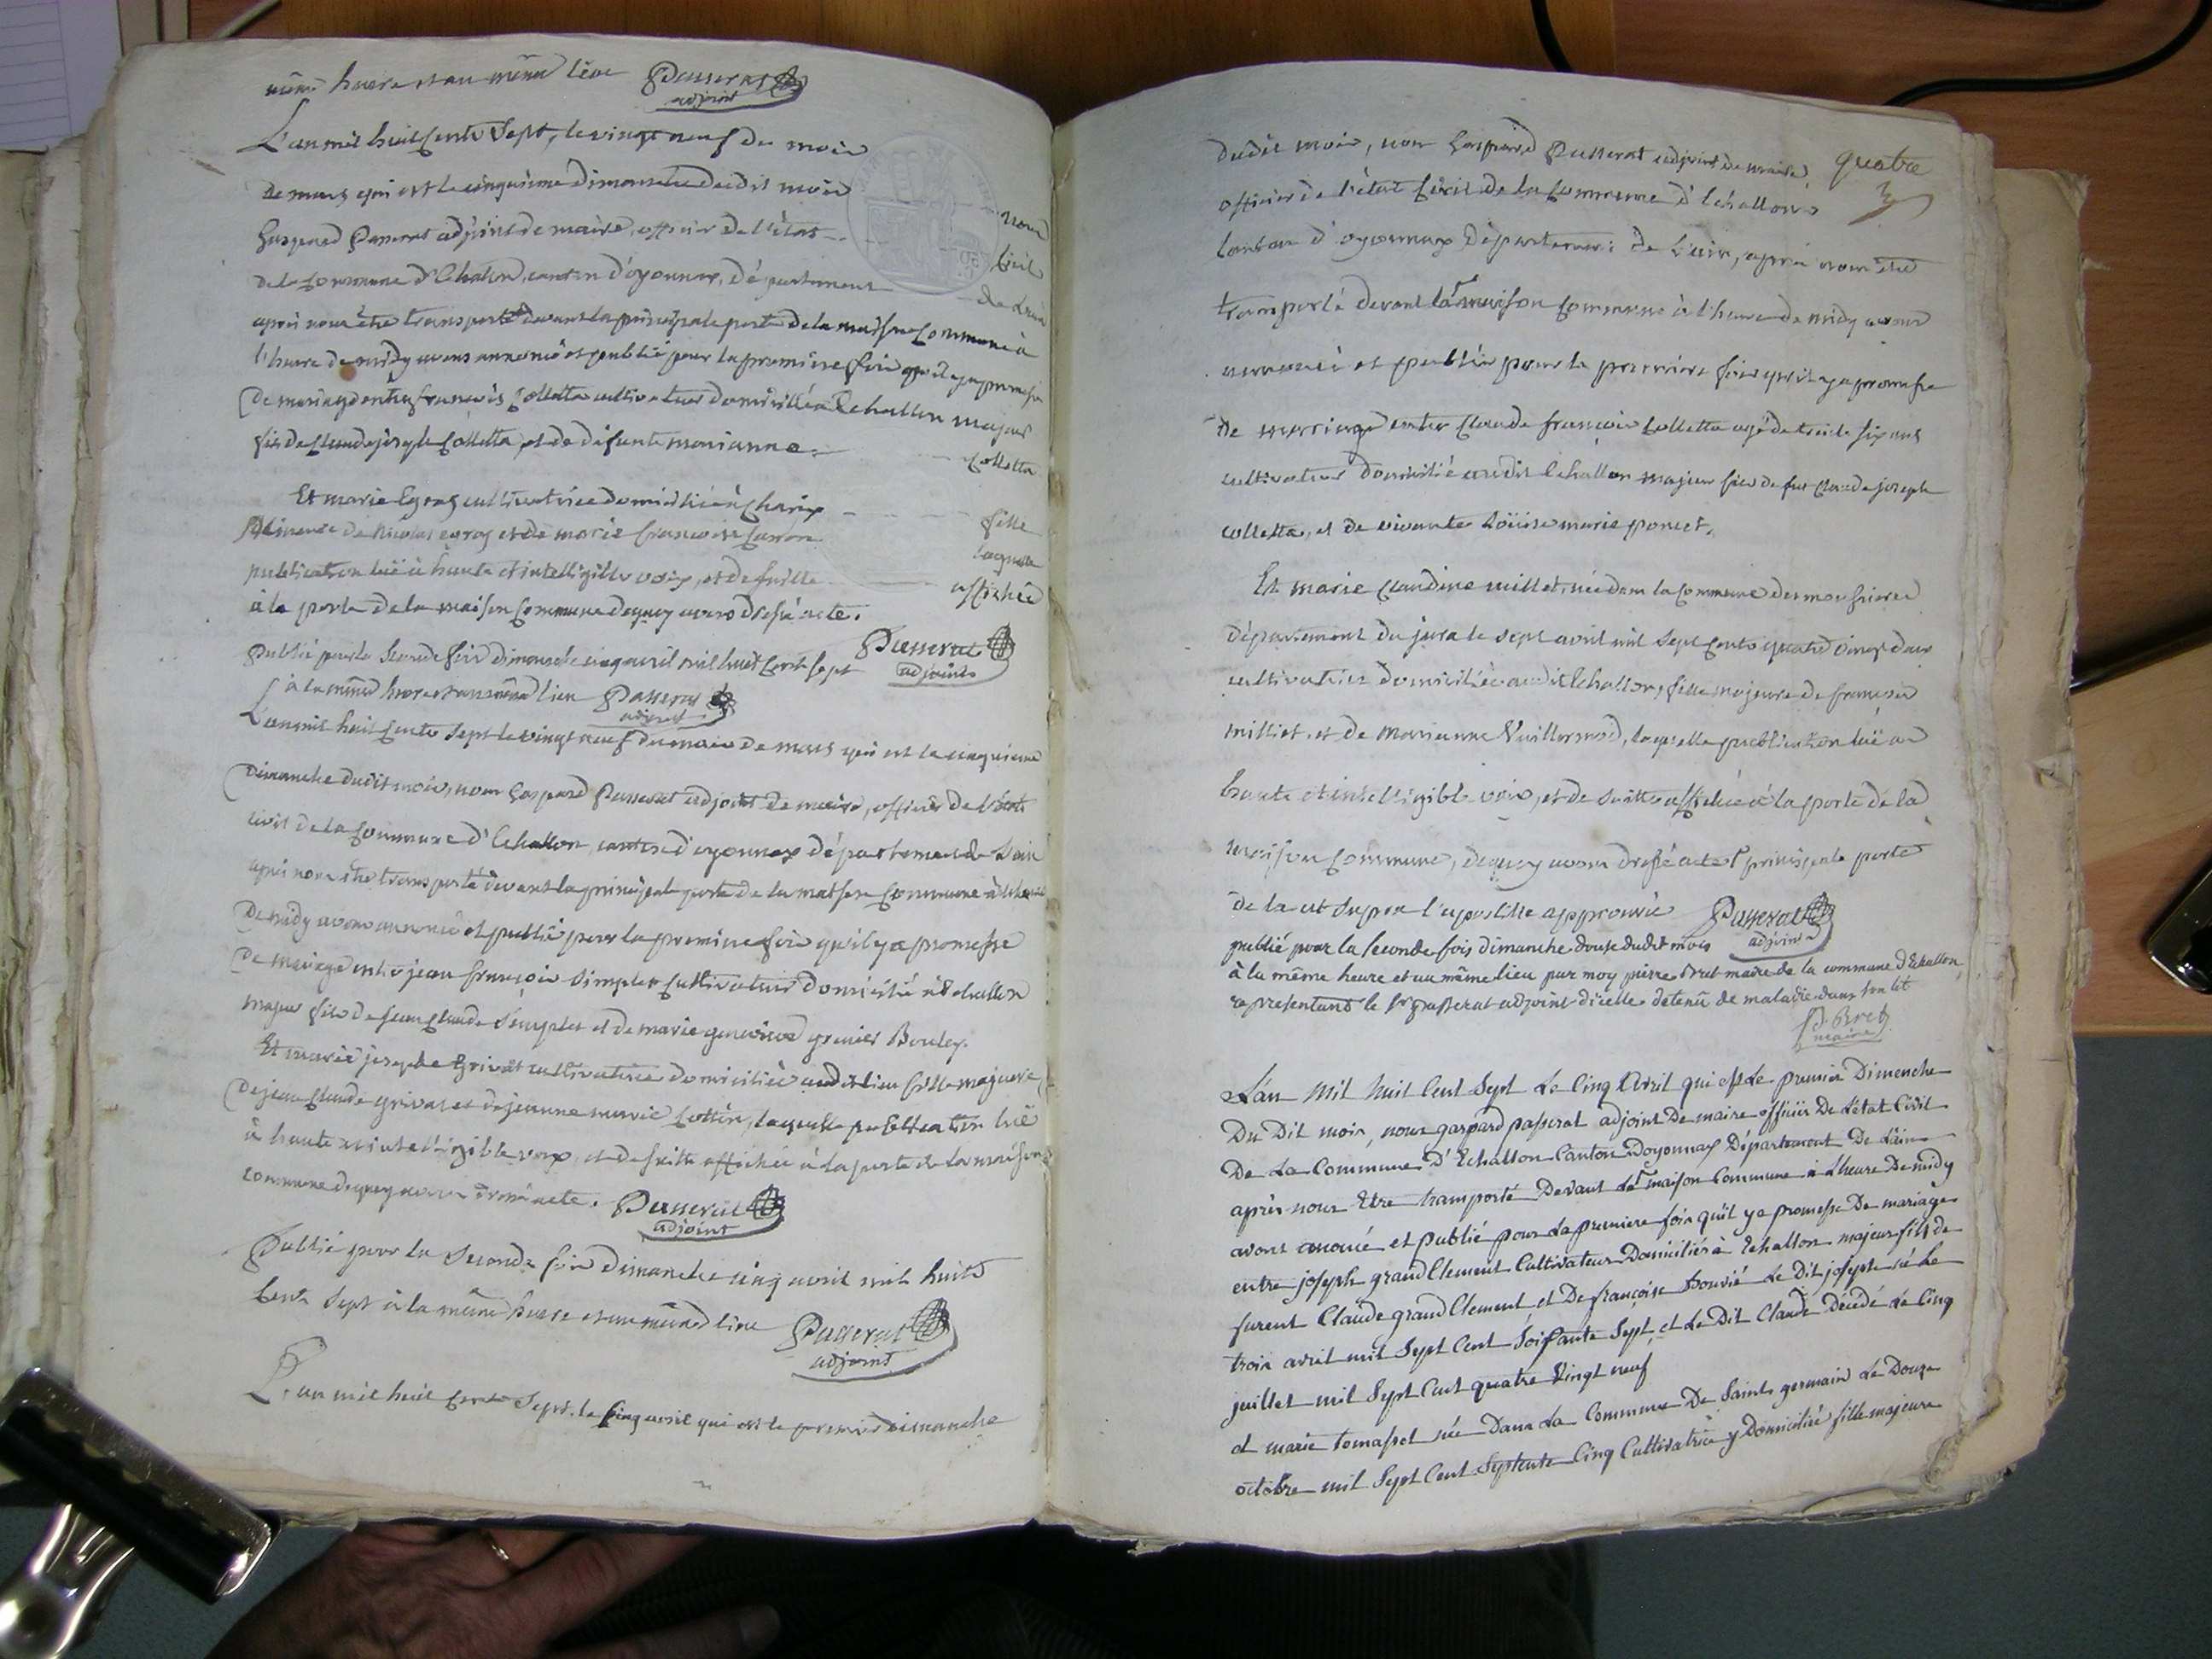 même heure et au même lieu Passerat
adjoint
L'an mil huit cents sept, le vingt neuf du mois
de mars qui est le cinquieme dimanche dudit mois nous
Gaspard Passerat adjoint de maire, officier de l'état civil
de la commune d'Echalon, canton d'oyonnax, département de L'ain
après nous être transporté devant la principale porte de la maison commune à
l'heure de midy avons annoncé et publié pour la premiere fois qu'il y a promesse
de mariage entre françois Colletta cultivateur domicilié à Echallon majeur
fils de Claude joseph Colletta, et de défunte marianne Colletta
Et marie Egraz cultivatrice domiciliée à Charix fille
mineure de Nicolas egraz et de marie françoise laquelle
publication luë à haute et intelligible voix, et de suitte affichée
à la porte de la maison commune dequoy avons dressé acte.
Passerat
adjoint
publié pour la seconde fois dimanche cinq avril mil huit cent sept
à la même heure et au même lieu Passerat
adjoint
L'an mil huit cents sept le vingt neuf du mois de mars qui est le cinquieme
dimanche dudit mois, nous Gaspard Passerat adjoint de maire, officier de l'état
civil de la commune d'Echallon, canton d'oyonnax département de L'ain
après nous être transporté devant la principale porte de la maison commune à l'heure
de midy avons annoncé et publié pour la premiere fois qu'il y a promesse
de mariage entre jean françois Simplex cultivateur domicilié à Echallon
majeur fils de jean Claude Simplex et de marie genevieve grenier Bouley.
Et marie josephe Grivat cultivatrice domiciliée audit lieu fille majeure
de jean Claude grivat et de jeanne marie Cottin, laquelle publication luë
à haute et intelligible voix, et de suitte affichée à la porte de la maison
commune dequoy avons dressé acte. Passerat
adjoint
Publié pour la Seconde fois dimanche cinq avril mil huit
Cent Sept à la même heure et au même lieu Passerat
adjoint
L'an mil huit cents Sept, le cinq avril qui est le premier dimanche
quatre
dudit mois, nous Gaspard Passerat adjoint de maire,
officier de l'état Civil de la Commune d'Echallon
Canton d'oyonnax département de L'ain, après nous être
transporté devant la maison Commune à l'heure de midy avons
annoncé et publié pour la premiere fois qu'il y a promesse
de marriage entre Claude françois Colletta agé de trente six ans
cultivateur domicilié audit Echallon majeur fils de feu Claude joseph
colletta, et de vivante Loüise marie poncet.
Et marie Claudine millet, née dans la Commune des moussieres
département du jura le sept avril mil sept cents quatre vingt deux
cultivatrice domiciliée audit Echallon, fille majeure de françois
milliet, et de Marianne Vuillermoz, laquelle publication luë à
haute et intelligible voix, et de Suitte affichée à la porte de la
maison Commune, dequoy avons dressé acte principale porte
de la ut supra l'apostille approuvée Passerat
adjoint
publié pour la seconde fois dimanche douze dudit mois
à la même heure et au même lieu par moy pierre Bret maire de la commune d'Echallon,
representant le Sr passerat adjoint d'icelle detenu de maladie dans son lit
P. Bret
maire
L'an Mil huit Cent Sept Le Cinq Avril qui est Le premier Dimenche
Du Dit mois, nous gaspard passerat adjoint De maire officier De L'état Civil
De La Commune D'Echallon Canton Doyonnax Département De L'ain
après nous Etre transporté Devant La maison Commune à L'heure De midy
avons anoncé et publié pour La premiere fois qu'il y a promesse De mariage
entre joseph grandClement Cultivateur Domicilié à Echallon majeur fils de
furent Claude grandClement et De françoise Bouvié Le Dit joseph né Le
trois avril mil Sept Cent Soissante Sept, et Le Dit Claude Décedé Le Cinq
juillet mil Sept Cent quatre Vingt neuf
et marie tomasset née Dans La Commune De Saint germain Le Douze
octobre mil Sept Cent Septente Cinq Cultivatrice y Domiciliée fille majeure